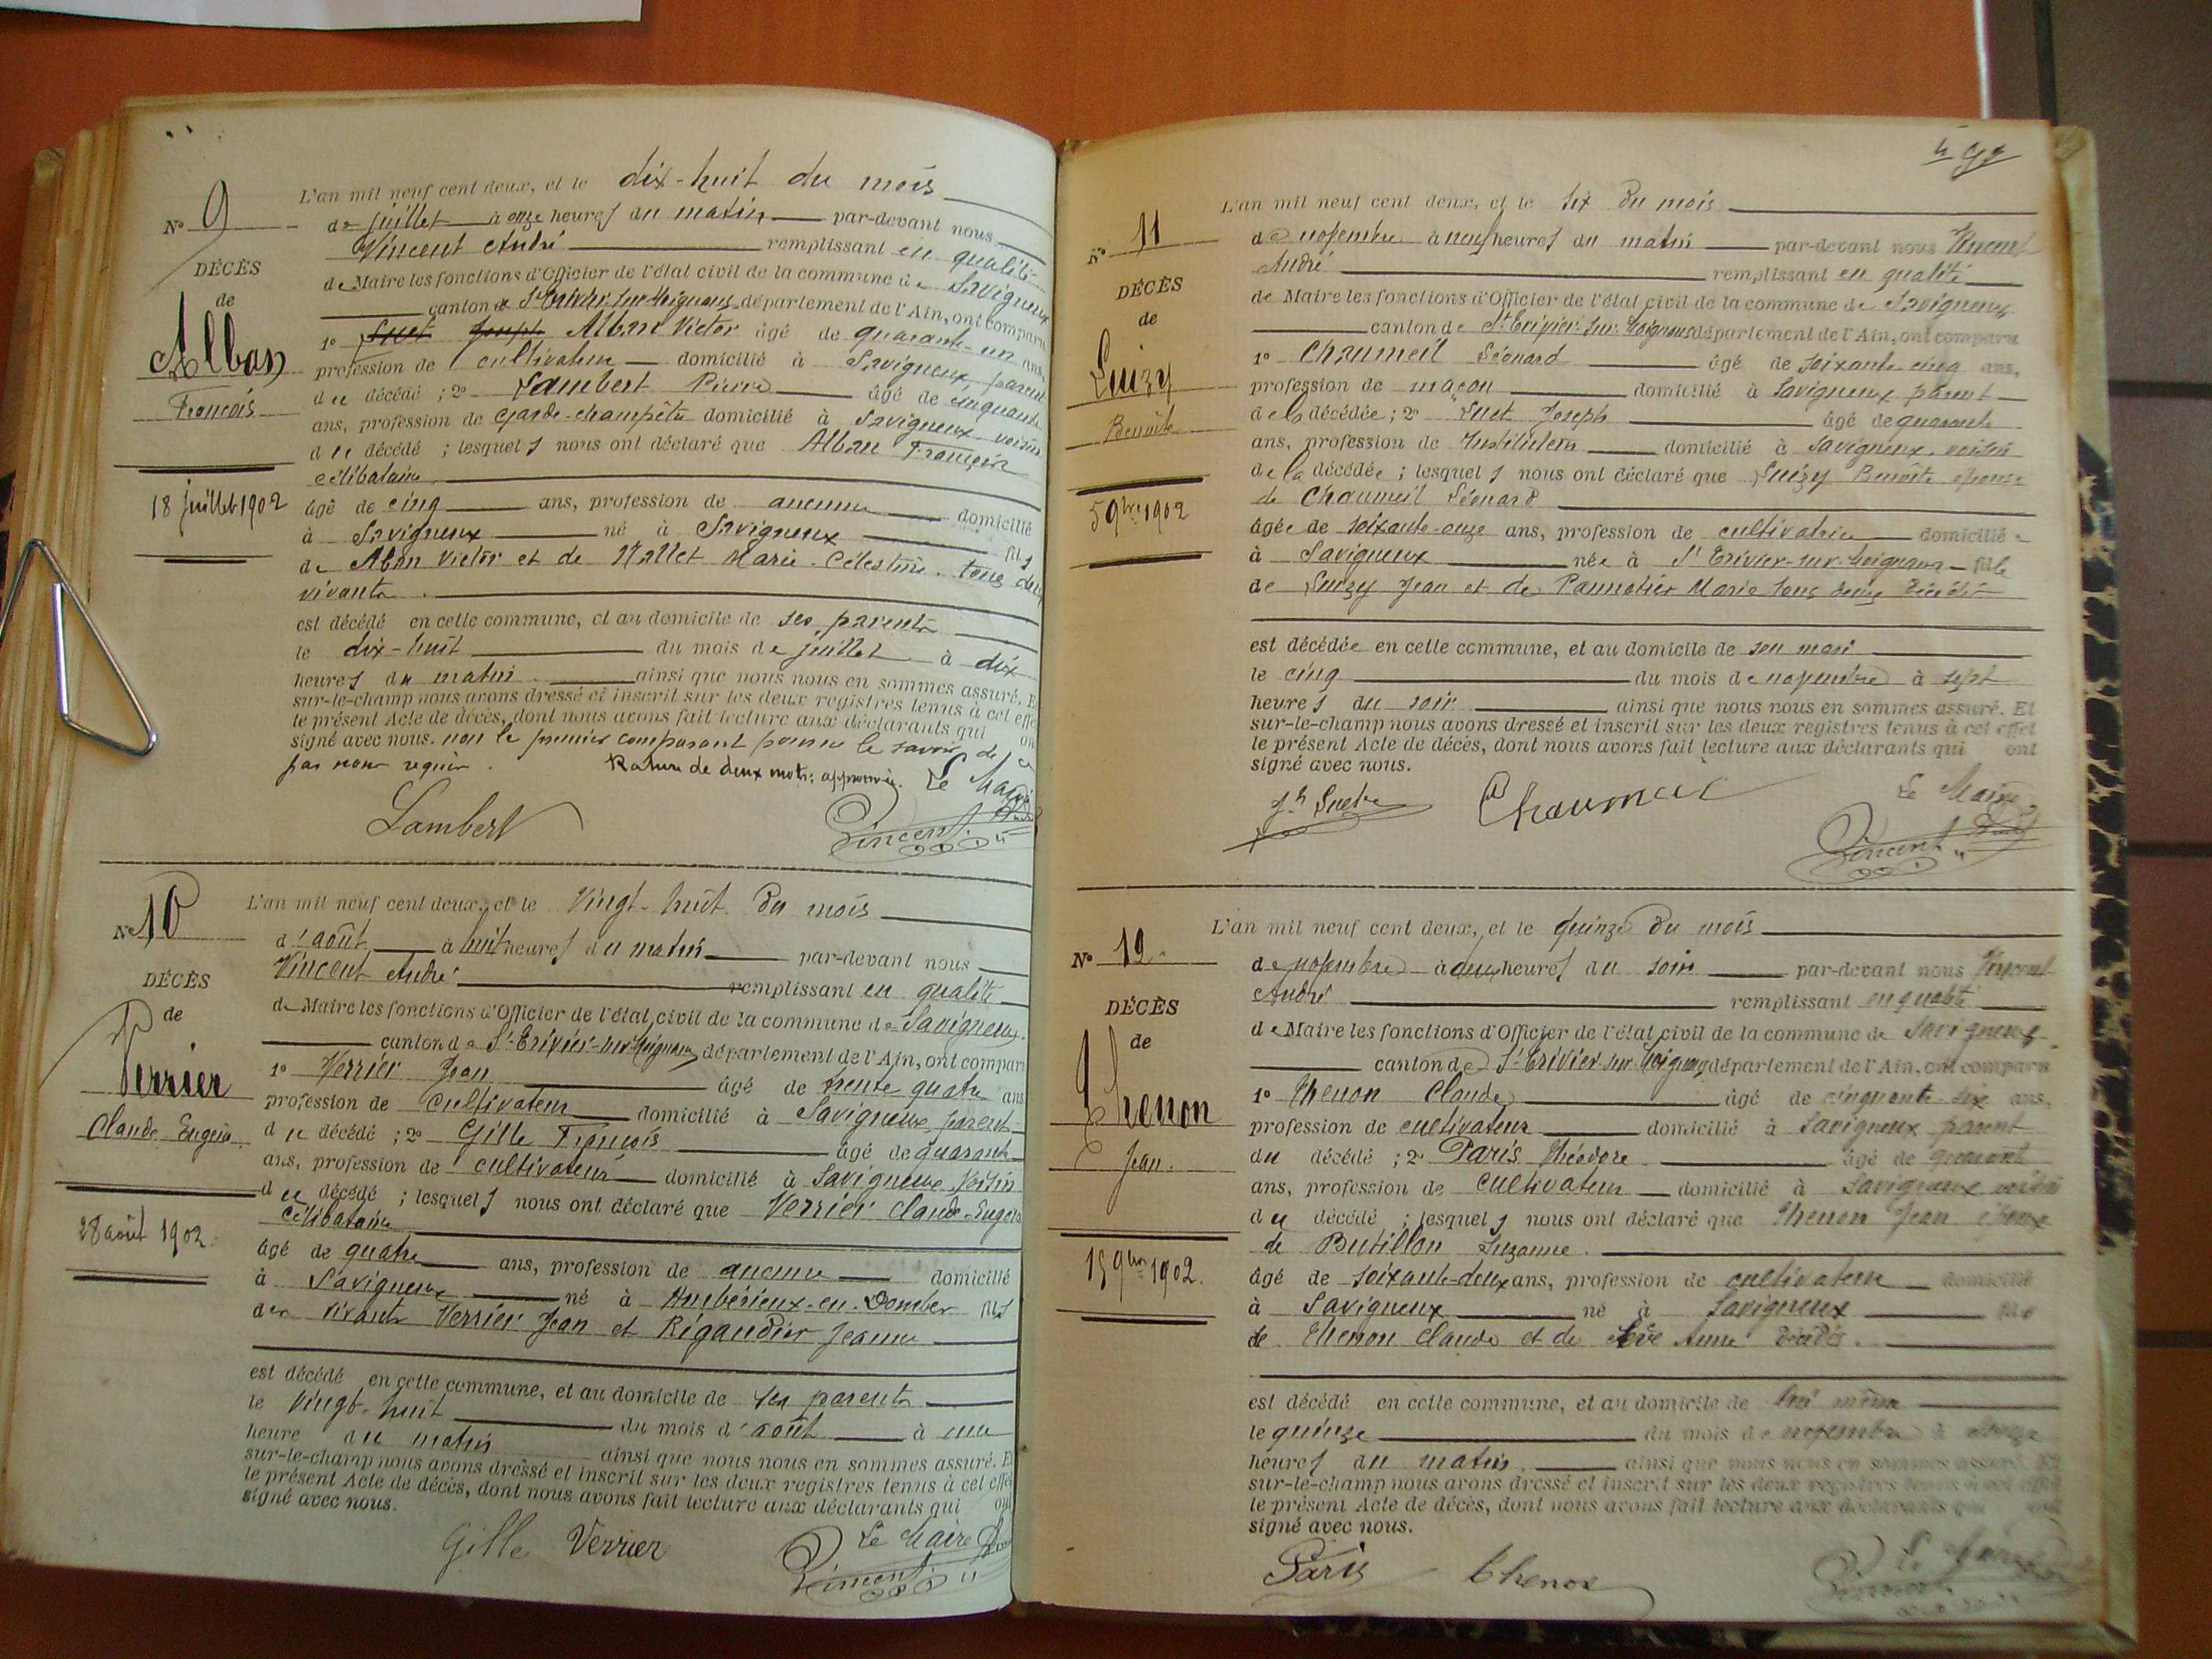 N° 9
DÉCÈS
de
Alban
François
18 juillet 1902
L'an mil neuf cent deux, et le dix-huit du mois
de juillet à onze heures du matin par-devant nous
Vincent André remplissant en qualité
de Maire les fonctions d'Officier de l'état civil de la commune de Savigneux
canton de St Trivier-sur-Moignans, département de l'Ain, ont comparu
1° Suet Joseph Alban Victor âgé de quarante-un ans,
profession de cultivateur domicilié à Savigneux, parent
du décédé ; 2° Lambert Pierre âgé de cinquante
ans, profession de garde-champêtre domicilié à Savigneux voisin
du décédé ; lesquels nous ont déclaré que Alban François
célibataire
âgé de cinq ans, profession de aucune domicilié
à Savigneux né à Savigneux fils
de Alban Victor et de Mallet Marie-Célestine. tous deux
vivants.
est décédé en cette commune, et au domicile de ses parents
le dix-huit du mois de juillet à dix
heures du matin ainsi que nous nous en sommes assuré. Et
sur-le-champ nous avons dressé et inscrit sur les deux registres tenus à cet effet
le présent Acte de décès, dont nous avons fait lecture aux déclarants qui ont
signé avec nous. non le premier comparant pour ne le savoir de ce
par nous requis. Rature de deux mots: approuvée. Le Maire
Lambert Vincent
N° 10
DÉCÈS
de
Verrier
Claude Eugène
28 août 1902.
L'an mil neuf cent deux, et le Vingt-huit du mois
d'août à huit heures du matin par-devant nous
Vincent André remplissant en qualité
de Maire les fonctions d'Officier de l'état civil de la commune de Savigneux
canton de St Trivier-sur-Moignans, département de l'Ain, ont comparu
1° Verrier Jean âgé de trente quatre ans
profession de cultivateur domicilié à Savigneux parent
du décédé ; 2° Gille François âgé de quarante
ans, profession de cultivateur domicilié à Savigneux voisin
du décédé ; lesquels nous ont déclaré que Verrier Claude-Eugène
célibataire
âgé de quatre ans, profession de aucune domicilié
à Savigneux né à Ambérieux-en-Dombes fils
des vivants Verrier Jean et Rigaudier Jeanne
est décédé en cette commune, et au domicile de ses parents
le Vingt-huit du mois d'août à une
heure du matin ainsi que nous nous en sommes assuré. Et
sur-le-champ nous avons dressé et inscrit sur les deux registres tenus à cet effet
le présent Acte de décès, dont nous avons fait lecture aux déclarants qui ont
signé avec nous.
Le Maire
Gille Verrier Vincent
N° 11
DÉCÈS
de
Luizy
Benoite
5 9bre 1902
L'an mil neuf cent deux, et le six du mois
de novembre à neuf heures du matin par-devant nous Vincent
André remplissant en qualité
de Maire les fonctions d'Officier de l'état civil de la commune de Savigneux
canton de St Trivier-sur-Moignans département de l'Ain, ont comparu
1° Chaumeil Léonard âgé de soixante cinq ans,
profession de maçon domicilié à Savigneux parent
de la décédée ; 2° Suet Joseph âgé de quarante
ans, profession de Instituteur domicilié à Savigneux voisin
de la décédée ; lesquels nous ont déclaré que Luizy Benoîte épouse
de Chaumeil Léonard
âgée de soixante-onze ans, profession de cultivatrice domiciliée
à Savigneux née à St Trivier-sur-Moignans fille
de Luizy Jean et de Pannetier Marie tous deux décédés
est décédée en cette commune, et au domicile de son mari
le cinq du mois de novembre à sept
heures du soir ainsi que nous nous en sommes assuré. Et
sur-le-champ nous avons dressé et inscrit sur les deux registres tenus à cet effet
le présent Acte de décès, dont nous avons fait lecture aux déclarants qui ont
signé avec nous.
Le Maire
Jh Suet Chaumeil Vincent
N° 12
DÉCÈS
de
Thenon
Jean.
15 9bre 1902.
L'an mil neuf cent deux, et le quinze du mois
de novembre à deux heures du soir par-devant nous Vincent
André remplissant en qualité
de Maire les fonctions d'Officier de l'état civil de la commune de Savigneux
canton de St Trivier-sur-Moignans département de l'Ain, ont comparu
1° Thenon Claude âgé de cinquante-six ans,
profession de cultivateur domicilié à Savigneux parent
du décédé ; 2° Paris Théodore âgé de quarante
ans, profession de cultivateur domicilié à Savigneux voisin
du décédé ; lesquels nous ont déclaré que Thenon Jean époux
de Butillon Suzanne.
âgé de soixante-deux ans, profession de cultivateur domicilié
à Savigneux né à Savigneux fils
de Thenon Claude et de Sève Anne décédés.
est décédé en cette commune, et au domicile de lui même
le quinze du mois de novembre à onze
heures du matin ainsi que nous nous en sommes assuré. Et
sur-le-champ nous avons dressé et inscrit sur les deux registres tenus à cet effet
le présent Acte de décès, dont nous avons fait lecture aux déclarants qui ont
signé avec nous.
Le Maire
Paris Thenon Vincent